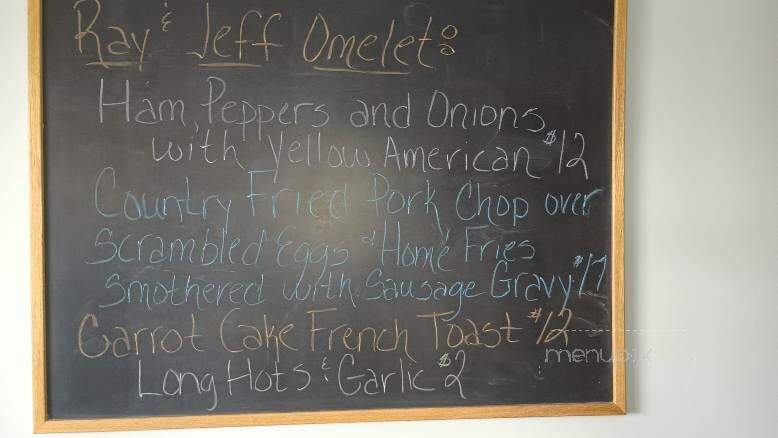 Ray & Jeff Omelet:
Ham, Peppers and Onions
with Yellow American $12
Country Fried Pork Chop over
Scrambled Eggs & Home Fries
Smothered with Sausage Gravy $17
Carrot Cake French Toast $12
Long Hots & Garlic $2
menupix